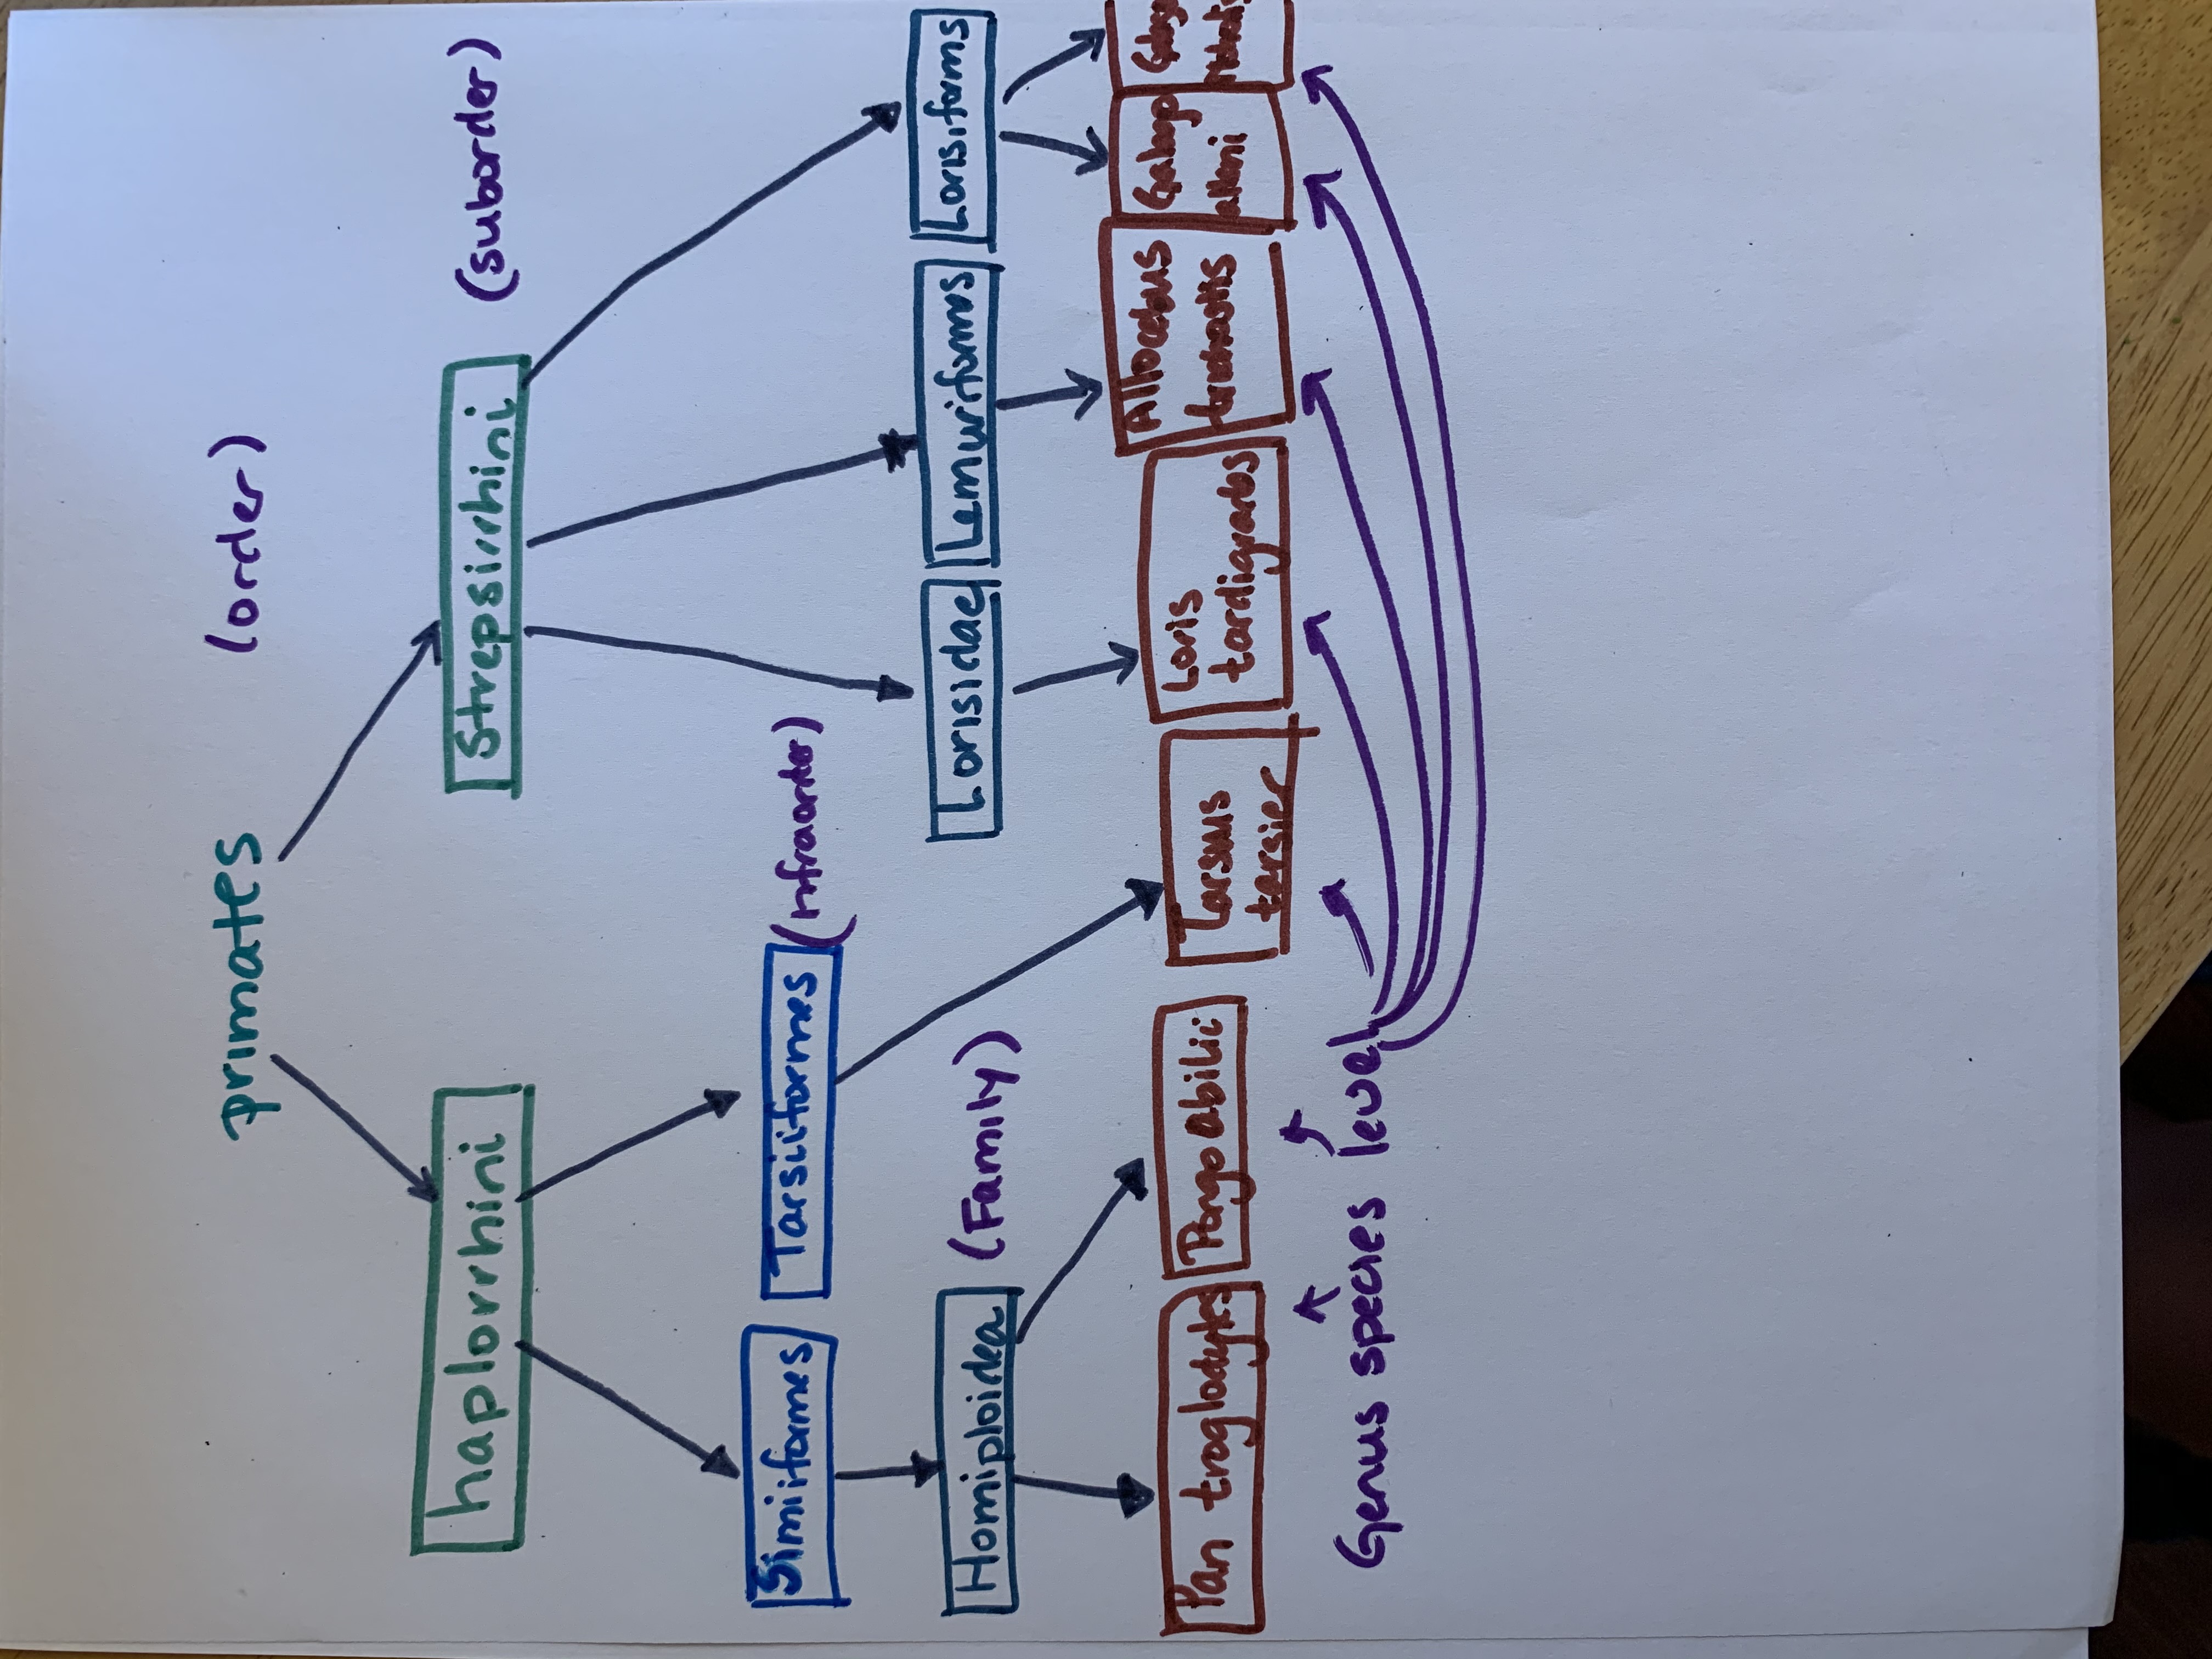 primates (order)
haplorrhini
Strepsirrhini
(suborder)
Simiiformes
Tarsiiformes
Homiploidea
(Family)
Lorisidae
Lemuriformes
Lorisiforms
Pan troglodytes
Pongo abilii
Tarsius
tarsier
Loris
tardigrarbs
Allocebus
alleni
Genus species level